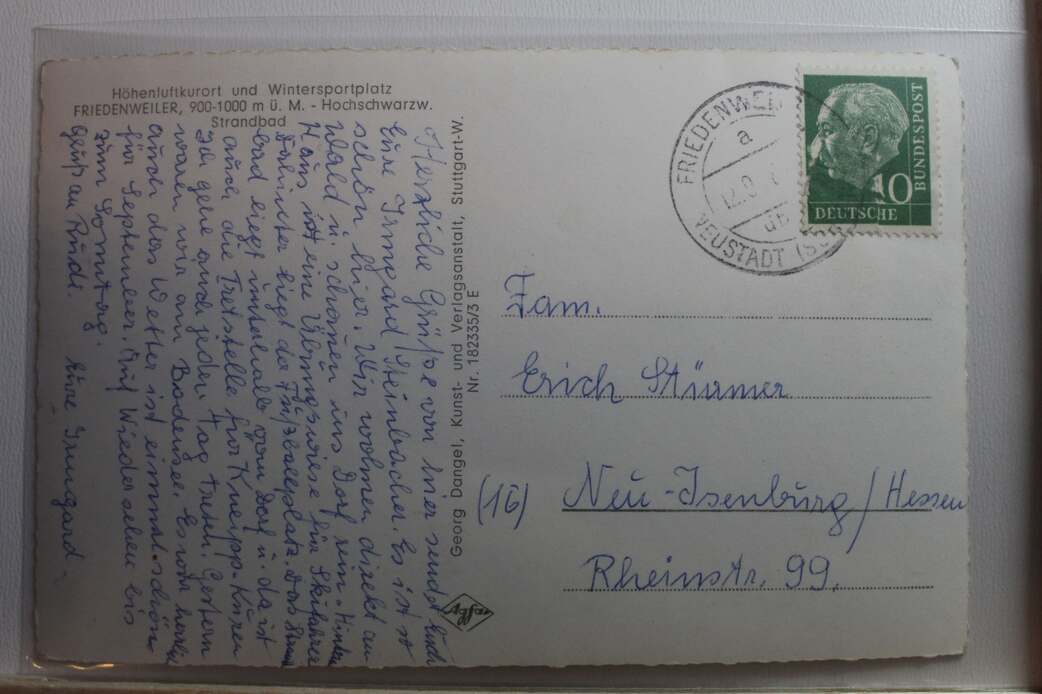 Höhenluftkurort und Wintersportplatz
FRIEDENWEILER, 900-1000 m ü. M. - Hochschwarzw.
Strandbad
Herzliche Grüße von hier sendet Euch
Eure Irmgard Steinbacher. Es ist so
schön hier. Wir wohnen direkt am
Wald u. schauen ins Dorf rein. Hinterm
Haus ist eine Übungswiese für Skifahrer
Dahinter liegt der Fußballplatz. Das Strand
bad liegt unterhalb vom Dorf u. da ist
auch die Tretstelle für Kneipp-Kuren
Ich gehe auch jeden Tag treten. Gestern
waren wir am Bodensee. Es war herrlich
auch das Wetter ist einmal schön
für September. Auf Wiedersehen bis
zum Sonntag.
Gruß an Rudi. Eure Irmgard
Georg Dangel, Kunst- und Verlagsanstalt, Stuttgart-W.
Nr. 182335/3 E
Agfa
FRIEDENWEI
a
NEUSTADT
10
DEUTSCHE
BUNDESPOST
Fam.
Erich Stürmer
(16) Neu-Isenburg/Hessen
Rheinstr. 99.